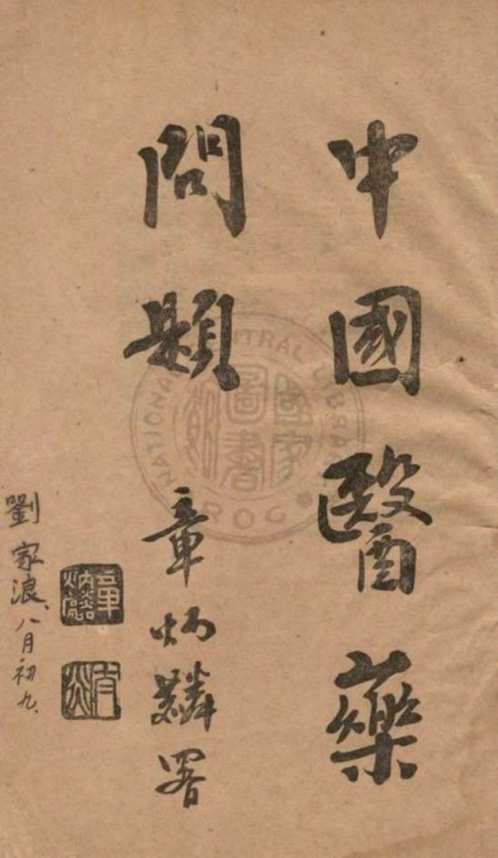 中國醫藥
問題 章炳麟署
章炳麟
太炎
劉家浪、八月初九、
NATIONAL CENTRAL LIBRARY
國家圖書館
ROC